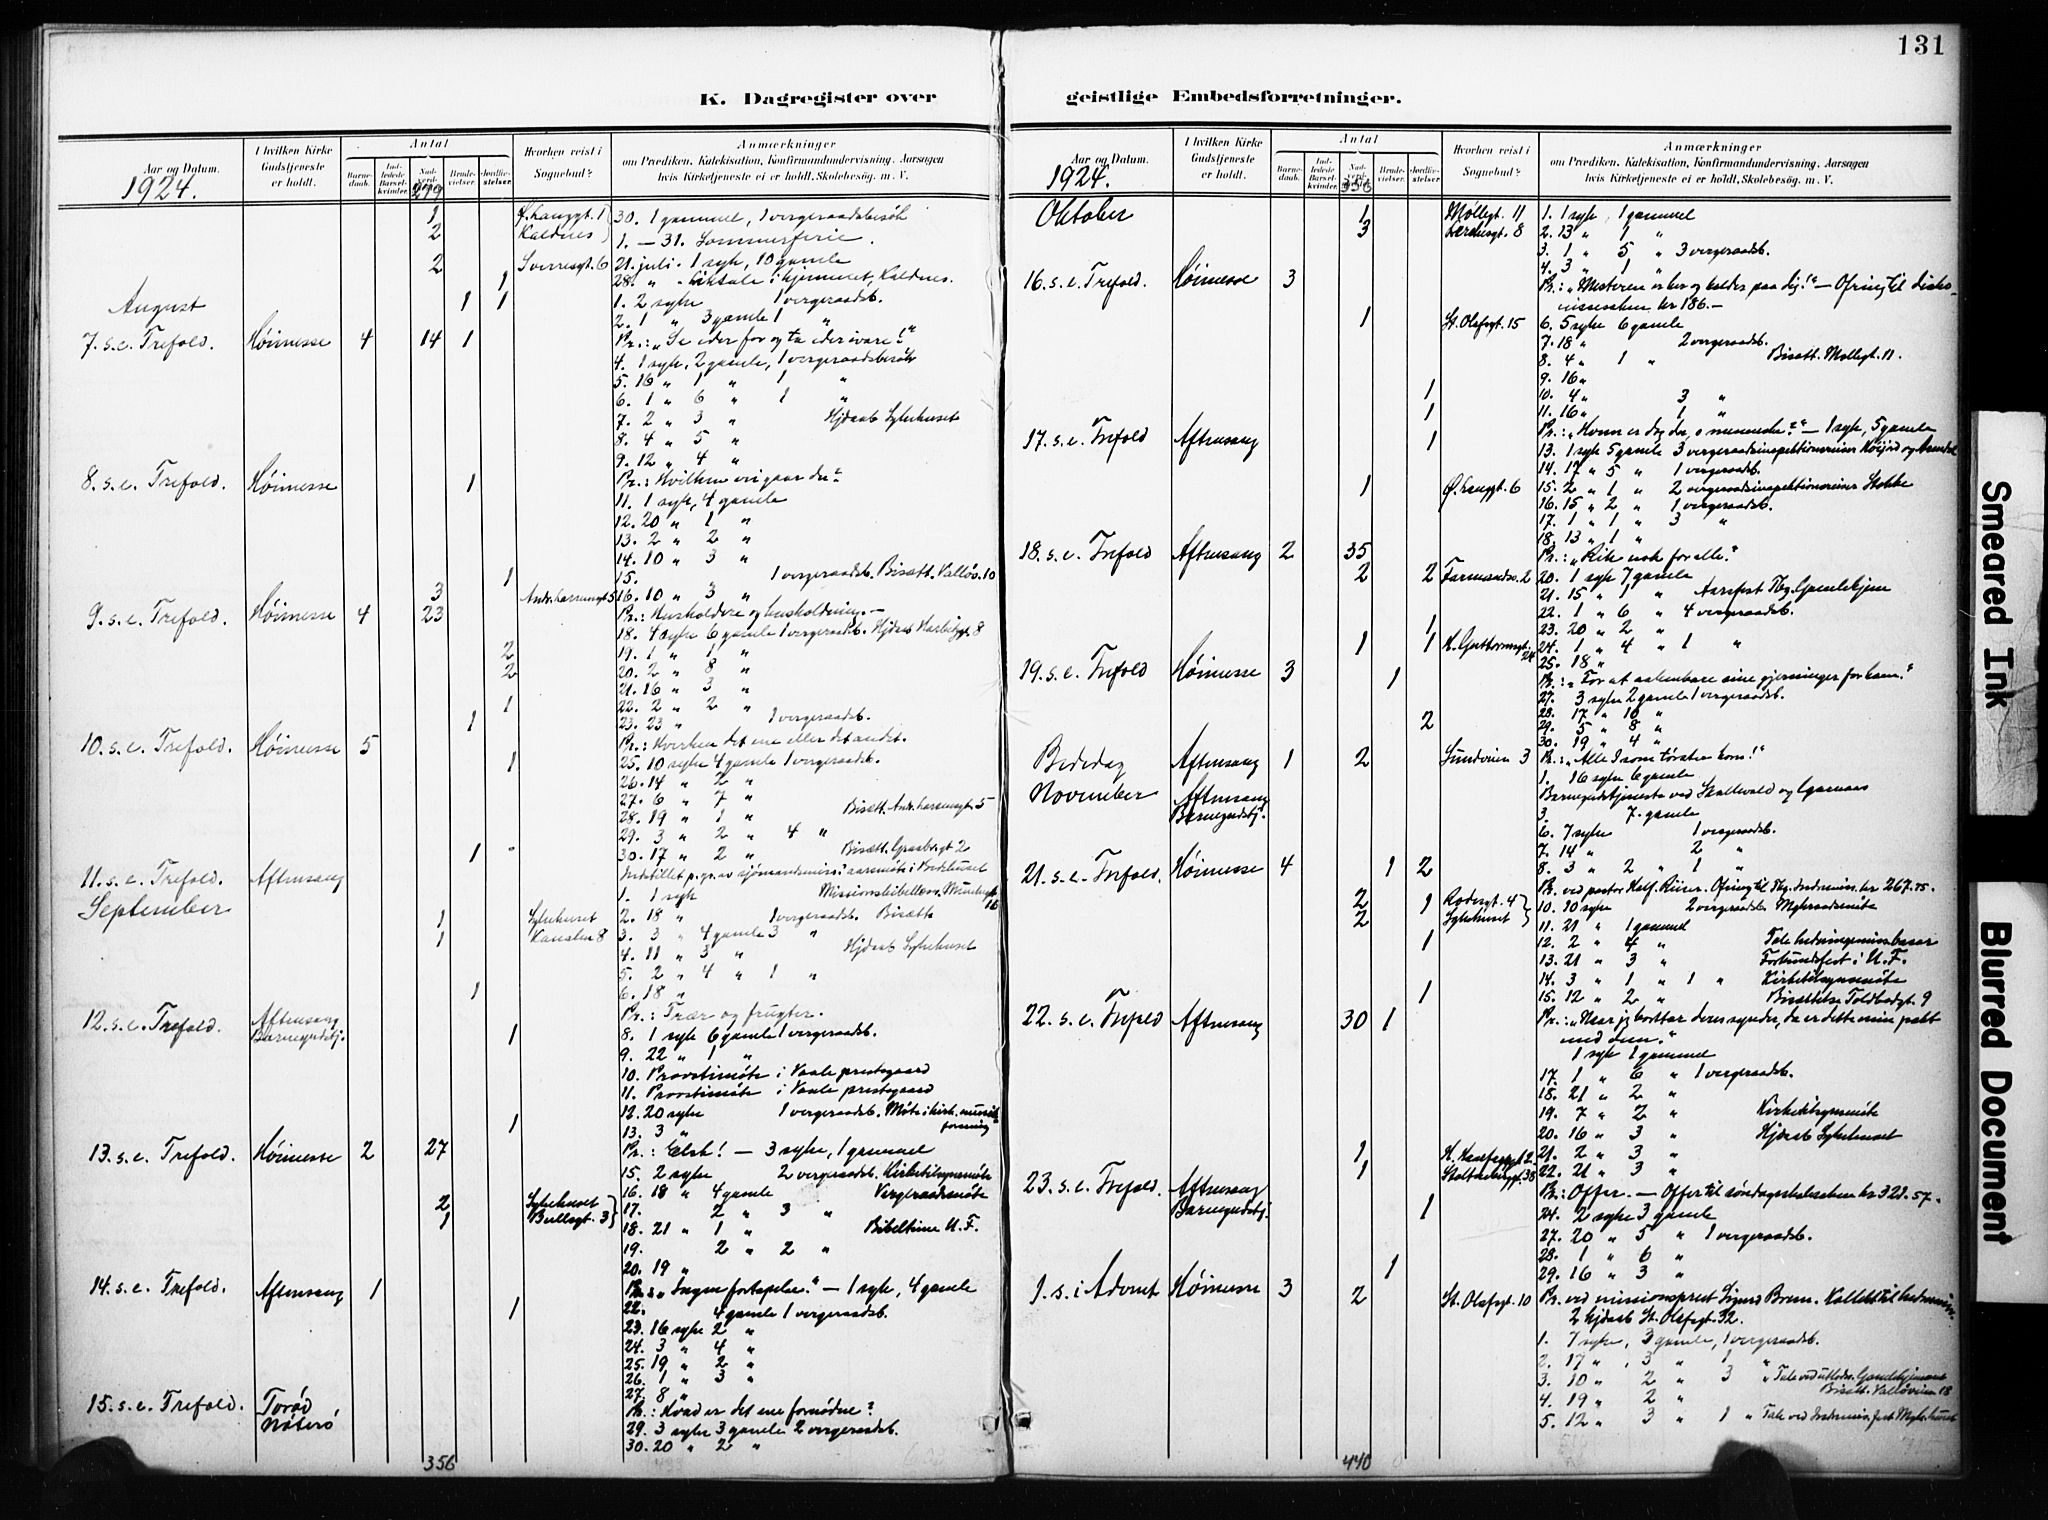 131
K. Dagregister over geistlige Embedsforretninger.
Aar og Datum.
1924.
I hvilken Kirke Gudstjeneste er holdt.
Antal
Barnedaab.
Indledede Barselkvinder.
Brudevielser.
Jordfæstelser.
Hvorhen reist i Sognebud?
Anmærkninger
om Prædiken, Katekisation, Konfirmandundervisning, Aarsagen
hvis Kirketjeneste ei er holdt, Skolebesøg, m. V.
279
1 Ø. Langgt. 1 30. 1 gammel, 1 vergeraadsbesøk
2 Kaldnes 1. – 31. Sommerferie.
2 Sverresgt. 6 21. juli. 1 syk, 10 gamle
1 28. „ Liktale i hjemmet, Kaldnes.
August 1 1 1. 2 syke 1 vergeraadsb.
2. 1 „ 3 gamle 1 „
7. s. e. Trefold. Høimesse 4 14 1 Pr.: „Se eder for og ta eder ivare!"
4. 1 syk, 2 gamle, 1 vergeraadsbesøk
5. 16 „ 1 „ 1 „
6. 1 „ 6 „ 1 „
7. 2 „ 3 „ Hjdaab Sykehuset
8. 4 „ 5 „
9. 12 „ 4 „
8. s. e. Trefold. Høimesse 1 Pr.: Hvilken vei gaar du?
11. 1 syk, 4 gamle
12. 20 „ 1 „
13. 2 „ 2 „
14. 10 „ 3 „
1 15. 1 vergeraadsb. Bisætt. Valløv. 10
3 16. 10 „ 3 „
9. s. e. Trefold. Høimesse 4 23 Pr.: Husholdere og husholdning.–
18. 4 syke 6 gamle 1 vergeraadsb. Hjdaab 8
2 19. 1 „ 1 „
2 20. 2 „ 8 „
21. 16 „ 3 „
1 22. 2 „ 2 „
1 23. 23 „ 1 vergeraadsb.
10. s. e. Trefold. Høimesse 5 Pr.: Hverken det ene eller det andet.
1 25. 10 syke 4 gamle 1 vergeraadsb.
26. 14 „ 2 „
27. 6 „ 7 „
28. 19 „ 1 „ Bisætt. Andr. Larsensgt. 5
29. 3 „ 2 „ 4 „
1 30. 17 „ 2 „ Bisætt. 2
11. s. e. Trefold. Aftensang Indstillet p. gr. av sjømandsmiss.s aarsmøte i Bedehuset
September 1. 1 syk
1 Sykehuset 2. 18 „ 1 vergeraadsb. Bisætt.
1 Kanalen 8 3. 3 „ 4 gamle 3 „
4. 11 „ 3 „ Hjdaab Sykehuset
5. 2 „ 4 „ 1 „
1 6. 18 „
12. s. e. Trefold. Aftensang Pr.: Trær og frugter.
Barnegudstj. 1 8. 1 syk 6 gamle 1 vergeraadsb.
9. 22 „ 1 „
10. Provstimøte i Vaale prestegaard
11. Provstimøte i Vaale prestegaard
12. 20 syke 1 vergeraadsb. Møte i kirk.
1 13. 3 „
13. s. e. Trefold. Høimesse 2 27 Pr.: Elsk! – 3 syke, 1 gammel
15. 2 syke 2 vergeraadsb. Kirketilsynsmøte
16. 18 „ 4 gamle Vergeraadsmøte
2 Sykehuset 17. 2 „ 3 „
1 Bullsgt. 3 18. 21 „ 1 „ Bibeltime U. F.
19. 2 „ 2 „
20. 19 „
14. s. e. Trefold. Aftensang 1 Pr.: „Ingen fortapelse." – 1 syk, 4 gamle
1 22. 4 gamle 1 vergeraadsb.
23. 16 syke 2 „
24. 3 „ 4 „
25. 19 „ 2 „
26. 1 „ 3 „
27. 8 „
15. s. e. Trefold. Torød Pr.: Hvad er det ene fornødne?
Nøterø 29. 3 syke 3 gamle 2 vergeraadsb.
30. 20 „ 2 „
356
Aar og Datum.
1924.
I hvilken Kirke Gudstjeneste er holdt.
Antal
Barnedaab.
Indledede Barselkvinder.
Brudevielser.
Jordfæstelser.
Hvorhen reist i Sognebud?
Anmærkninger
om Prædiken, Katekisation, Konfirmandundervisning, Aarsagen
hvis Kirketjeneste ei er holdt, Skolebesøg, m. V.
356
Oktober 1 Møllegt. 11 1. 1 syk, 1 gammel
3 8 2. 13 „ 1 „
3. 1 „ 5 „ 3 vergeraadsb.
4. 3 „ 1 „
16. s. e. Trefold. Høimesse 3 Pr.: „Mesteren er her og kalder paa dig!" – Ofring til
kr 186.–
1 St. Olafsgt. 15 6. 5 syke 6 gamle
7. 18 „ 2 vergeraadsb.
8. 4 „ 1 „ Bisætt. Møllegt. 11.
9. 16 „
1 10. 4 „ 3 „
1 11. 16 „ 1 „
17. s. e. Trefold Aftensang 1 Pr.: „Hvem er dog du, o menneske?" – 1 syk, 5 gamle
13. 1 syk 5 gamle 3 vergeraadsinspektionsreiser
14. 17 „ 5 „ 1 vergeraadsb.
1 Ø. Langgt. 6 15. 2 „ 1 „ 2 vergeraadsinspektionsreiser Stokke
16. 15 „ 2 „ 1 vergeraadsb.
17. 1 „ 1 „ 3 „
18. 13 „ 1 „
18. s. e. Trefold Aftensang 2 35 Pr.: „Rik nok for alle."
2 2 Farmandsv. 2 20. 1 syk 7 gamle
21. 15 „ 1 „ Aarsfest Tbg. Gamlehjem
22. 1 „ 6 „ 4 vergeraadsb.
1 23. 20 „ 2 „
1 1 24 24. 1 „ 4 „ 1 „
25. 18 „
19. s. e. Trefold Høimesse 3 1 Pr.: „For at aabenbare sine gjerninger for ham."
27. 3 syke 2 gamle 1 vergeraadsb.
2 28. 17 „ 10 „
29. 5 „ 8 „
30. 19 „ 4 „
Bededag Aftensang 1 2 Sundveien 3 Pr.: „Alle I som tørster kom!"
1. 16 syke 6 gamle
November Aftensang Barnegudstjeneste ved
Barnegudstj. 3. 7 gamle
6. 7 syke 1 vergeraadsb.
7. 14 „ 2 „
8. 3 „ 2 „ 1 „
21. s. e. Trefold. Høimesse 4 1 2 Pr. ved pastor Half. Riiser. Ofring til Tbg. kr 267.75.
2 1 Rødsgt. 4 10. 10 syke 2 vergeraadsb.
2 Sykehuset 11. 21 „ 1 gammel
1 12. 2 „ 4 „ Tale hedningemiss. basar
13. 21 „ 3 „ i U. F.
14. 3 „ 1 „ 1 „ Kirketilsynsmøte
1 15. 12 „ 2 „ Bisættelse Toldbodgt. 9
22. s. e. Trefold Aftensang 30 1 Pr.: „Naar jeg borttar deres synder, da er dette min pakt
med dem."
1 syk 1 gammel
17. 1 „ 6 „ 1 vergeraadsb.
18. 21 „ 2 „
19. 7 „ 2 „ Kirketilsynsmøte
20. 16 „ 3 „ Hjdaab Sykehuset
1 21. 2 „ 3 „
1 38 22. 21 „ 3 „
23. s. e. Trefold. Aftensang Pr.: Offer. – Offer til søndagsskolesaken kr 328.57.
Barnegudstj. 1 24. 2 syke 3 gamle
27. 20 „ 5 „ 1 vergeraadsb.
28. 1 „ 6 „
1 29. 16 „ 3 „
1. s. i Advent Høimesse 3 2 St. Olafsgt. 10 Pr. ved missionsprest Sigurd Brem.
2 hjdaab St. Olafsgt. 32.
1. 7 syke, 3 gamle, 1 vergeraadsb.
2. 17 „ 3 „ 1 „
3. 10 „ 2 „ 3 „
4. 19 „ 2 „ Bisætt. Valløveien 18
5. 12 „ 3 „ 1 „
440
Smeared Ink
Blurred Document